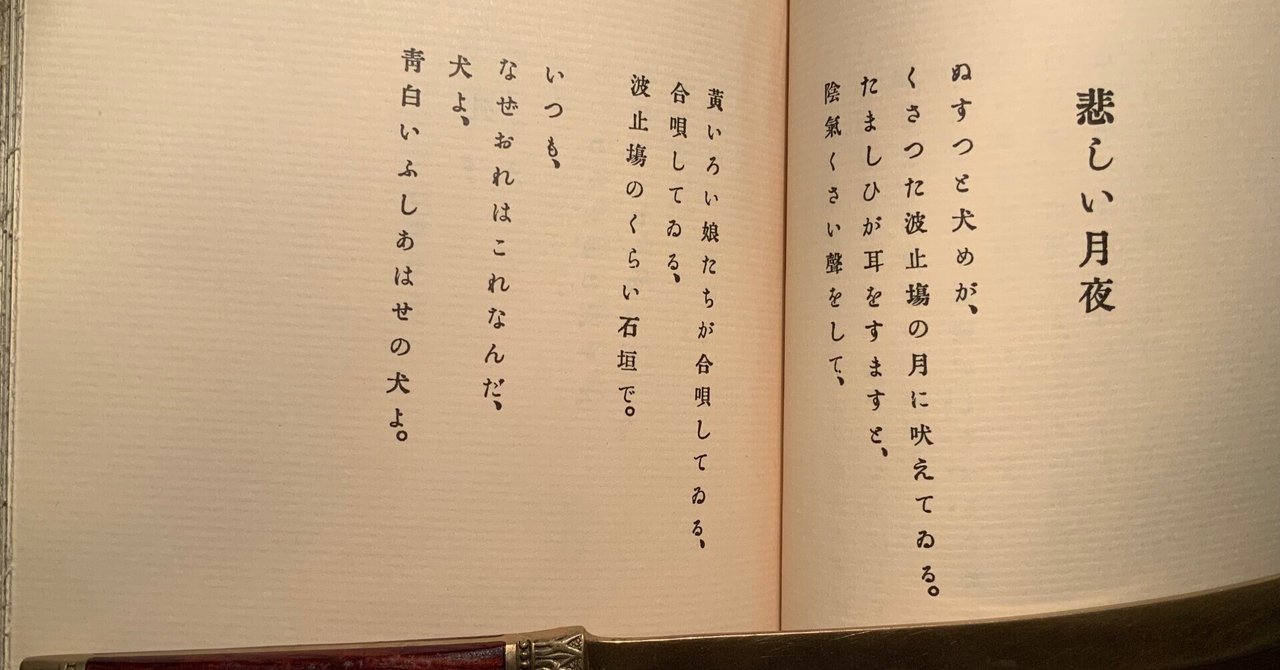 悲しい月夜
ぬすつと犬めが、
くさつた波止塲の月に吠えてゐる。
たましひが耳をすますと、
陰氣くさい聲をして、
黄いろい娘たちが合唄してゐる、
合唄してゐる、
波止塲のくらい石垣で。
いつも、
なぜおれはこれなんだ、
犬よ、
靑白いふしあはせの犬よ。